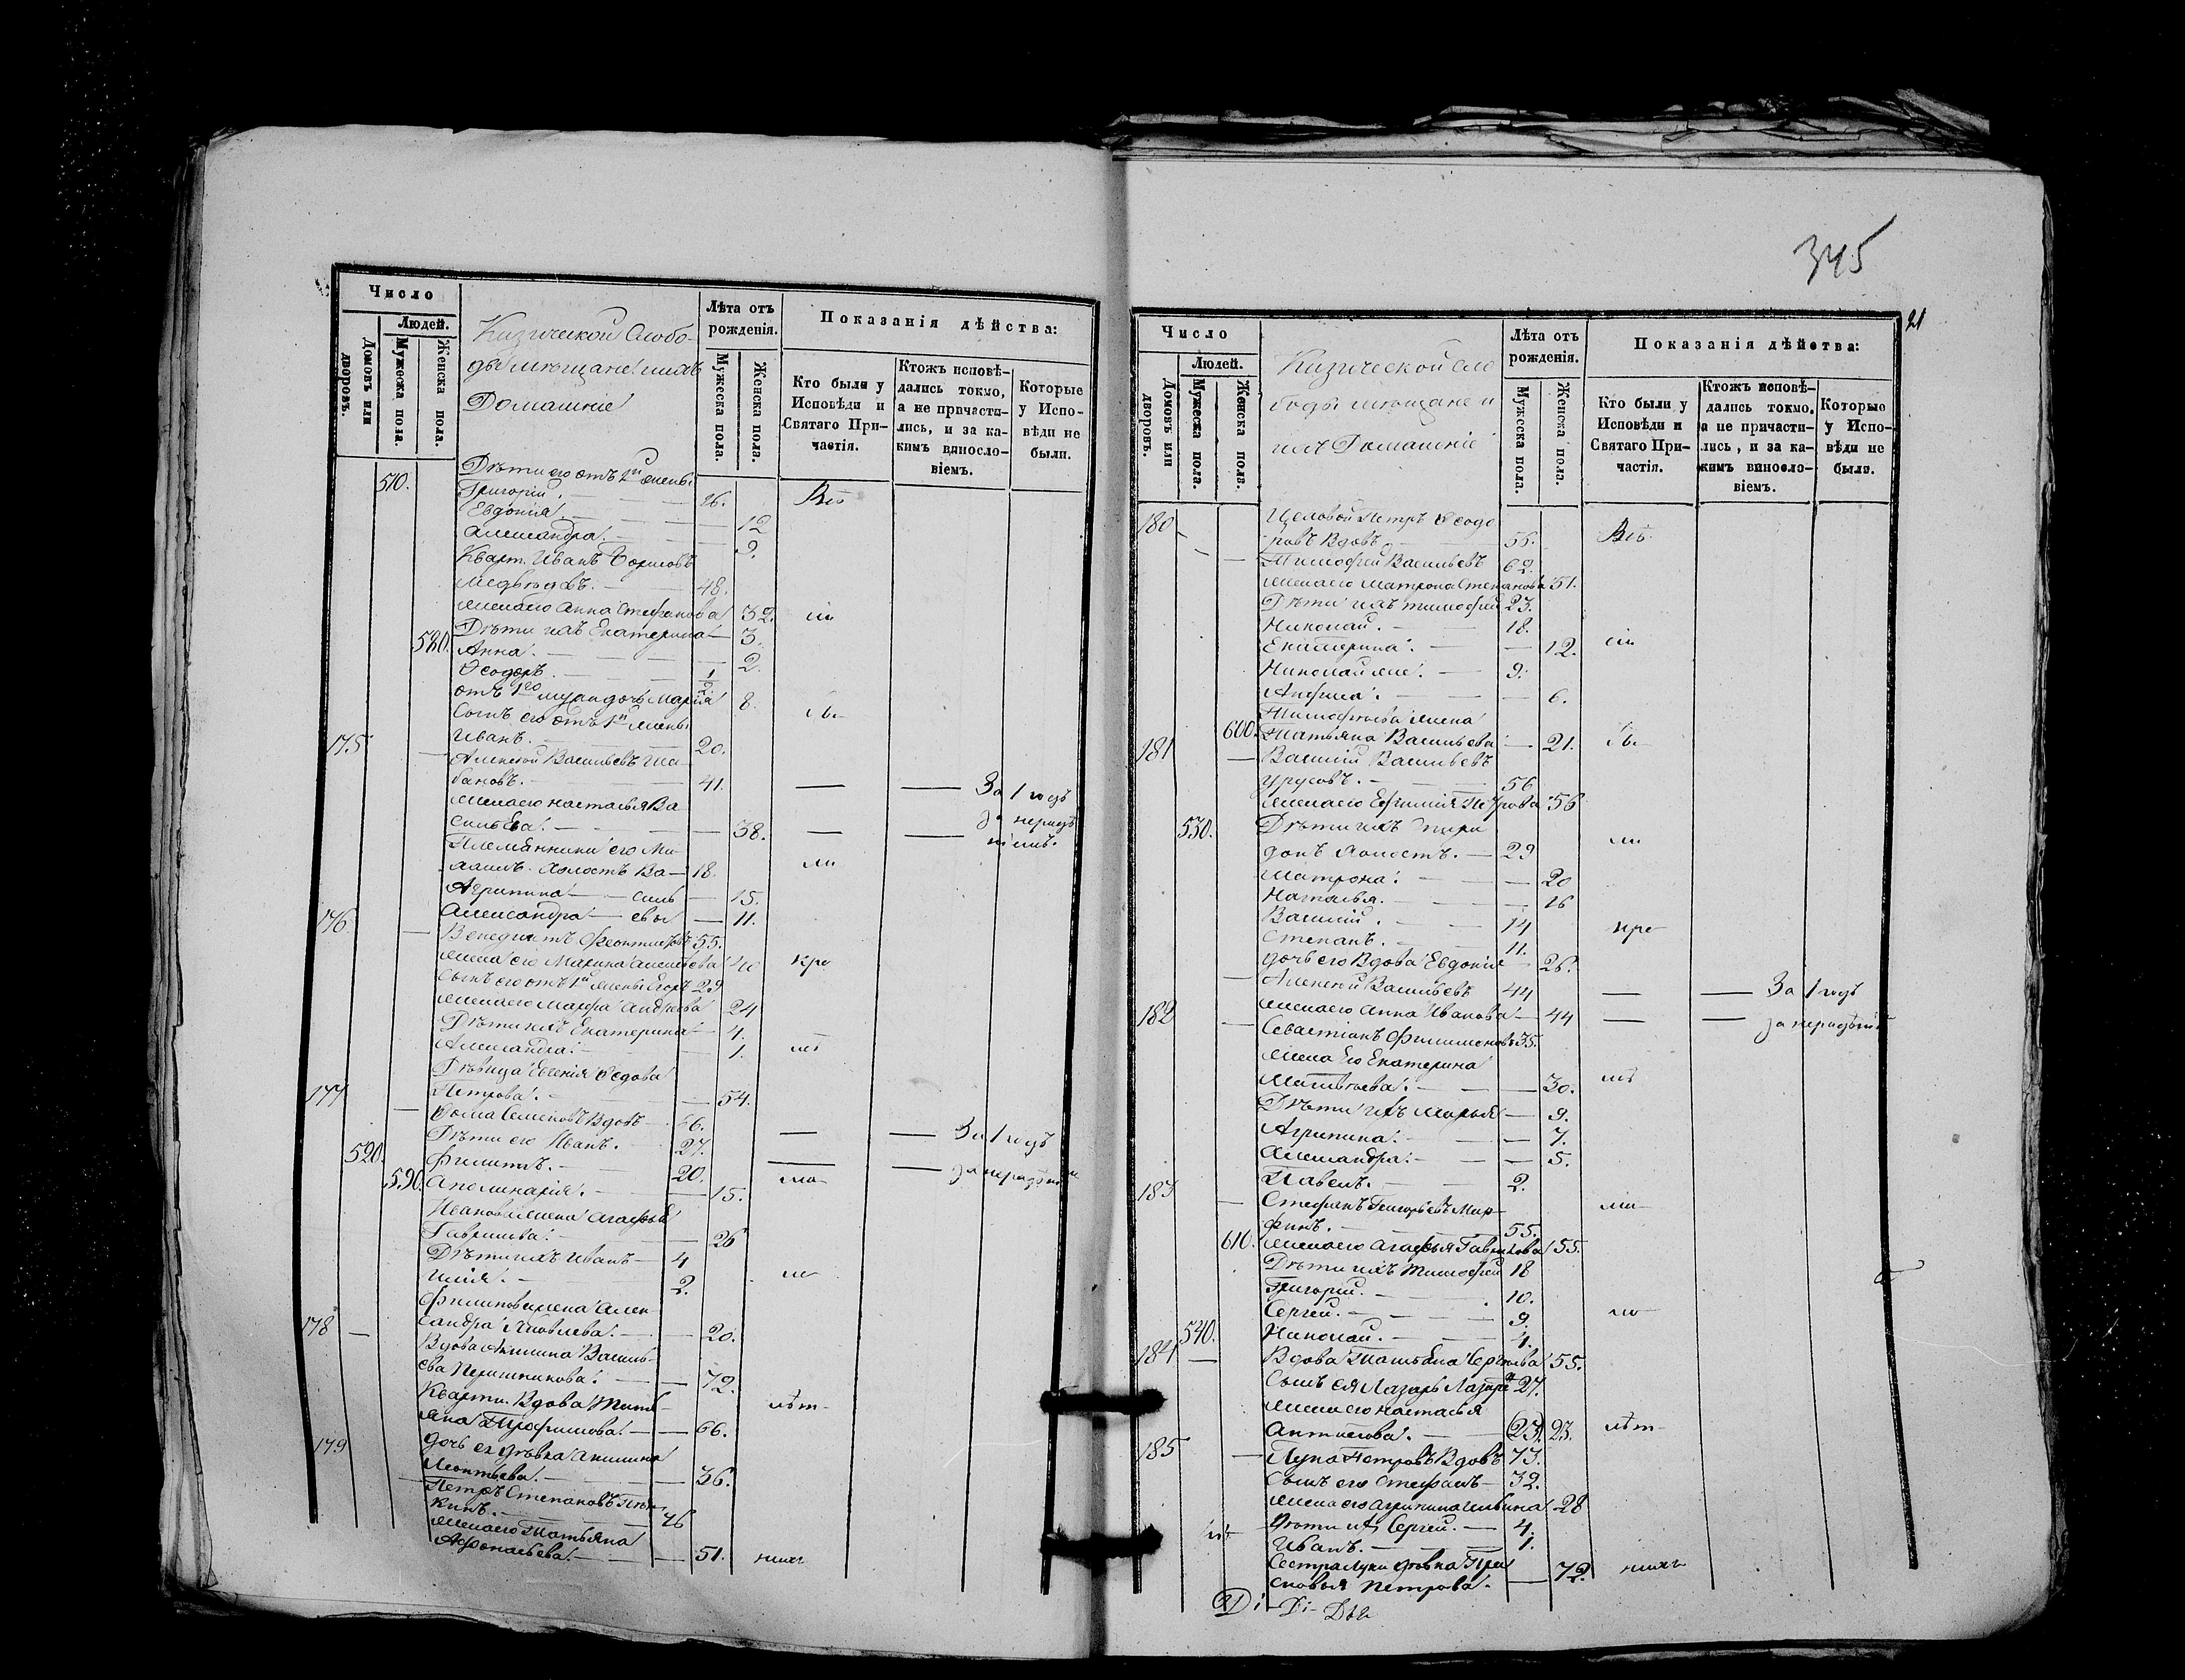 Число
Людей.
Домовъ или дворовъ.
Мужеска пола.
Женска пола.
Кизической Слобо-
ды мѣщане и ихъ
Домашніе
Лѣта отъ рожденія.
Мужеска пола.
Женска пола.
Показанія дѣйства:
Кто были у Исповѣди и Святаго При-частія.
Ктожъ исповѣ-дались токмо, а не причасти-лись, и за ка-кимъ винословіемъ.
Которые у Испо-вѣди не были.
510. Дѣти его отъ 1й жены
Григорій. 26. Всѣ
Евдокія. 12
Александра. 9.
Кварт. Иванъ Борисовъ
Медвѣдевъ. 48.
жена его Анна Стефанова 32.
Дѣти ихъ Екатерина 3.
580. Анна. 2.
Ѳеодоръ. 1/2
отъ 1го мужа дочь Марія 8.
Сынъ его отъ 1й жены
Иванъ. 20.
175 Алексей Васильевъ Ша-
бановъ. 41. За 1 годъ
жена его Настасья Ва
сильева. 38. за нерадѣ
ніемъ.
Племянники его Ми-
хаилъ холостъ Ва- 18.
Агрипина силь 15.
Александра евы 11.
176 Венедиктъ 55.
жена его Марина Алексѣева 40 кре
Сынъ его отъ 1й жены Егоръ 29
жена его Марфа Андреева 24
Дѣти ихъ Екатерина 4.
Александра. 1.
Дѣвица Евгенія
Петрова. 54.
177 Ѳома Семеновъ Вдовъ 66.
Дѣти его Иванъ. 27. За 1 годъ
520. Филиппъ. 20. за нерадѣніе
590. Аполинарія. 15.
Иванова жена Агафья
Гаврилова. 26
Дѣти ихъ Иванъ 4
Илія. 2.
Филипова жена Алек
сандра Яковлева. 20.
178 Вдова Акилина Василь-
ева 72.
Кварти. Вдова Тать-
яна Трофимова. 66. лѣт-
дочь ея дѣвка Акилина
Леонтьева. 36.
179 Петръ Степановъ
кинъ. 46
жена его Татьяна
Афонасьева. 51. нихъ
345
21
Число
Людей.
Домовъ или дворовъ.
Мужеска пола.
Женска пола.
Кизической Сло
боды мѣщане и
ихъ Домашніе
Лѣта отъ рожденія.
Мужеска пола.
Женска пола.
Показанія дѣйства:
Кто были у Исповѣди и Святаго При-частія.
Ктожъ исповѣ-дались токмо, а не причасти-лись, и за ка-кимъ винословіемъ.
Которые у Испо-вѣди не были.
180 Цеховой Петръ Ѳеодо
ровъ Вдовъ 55. Всѣ
Тимофей Васильевъ 62.
жена его Матрона Степанова 51.
Дѣти ихъ Тимофей 23.
Николай. 18.
Екатерина. 12.
Николай же. 9.
Анфиса. 6.
Тимофѣева жена
600. Татьяна Васильева 21.
181 Василій Васильевъ
Урусовъ. 56
жена его Ефимія Петрова 56
530. Дѣти ихъ Спири
донъ холостъ. 29
Матрона. 20
Наталья. 16
Василій. 14 кре
Степанъ. 11.
дочь его Вдова Евдокія 26.
Алексей Васильевъ 44 За 1 годъ
жена его Анна Иванова 44 за нерадѣніе
182 Севастіанъ Филимоновъ 35.
жена Его Екатерина
Матвѣева. 30.
Дѣти ихъ Марья 9.
Агрипина. 7.
Александра. 5.
Павелъ. 2.
183 Стефанъ Григорьевъ Мар-
финъ. 55.
610. жена его Агафья Гаврилова 55.
Дѣти ихъ Тимофей 18
Григорій. 10.
Сергей. 9.
540. Николай. 4.
184 Вдова Татьяна Сергѣева 55.
Сынъ ея Лазарь 27.
жена его Настасья
Антипова. 23. 23. лѣт-
185 Лука Петровъ Вдовъ 73.
Сынъ его Стефанъ 32.
жена его Агрипина Ильина 28
Дѣти их Сергей. 4.
Иванъ. 1.
Сестра Луки дѣвка Пра
сковья Петрова. 72. нихъ